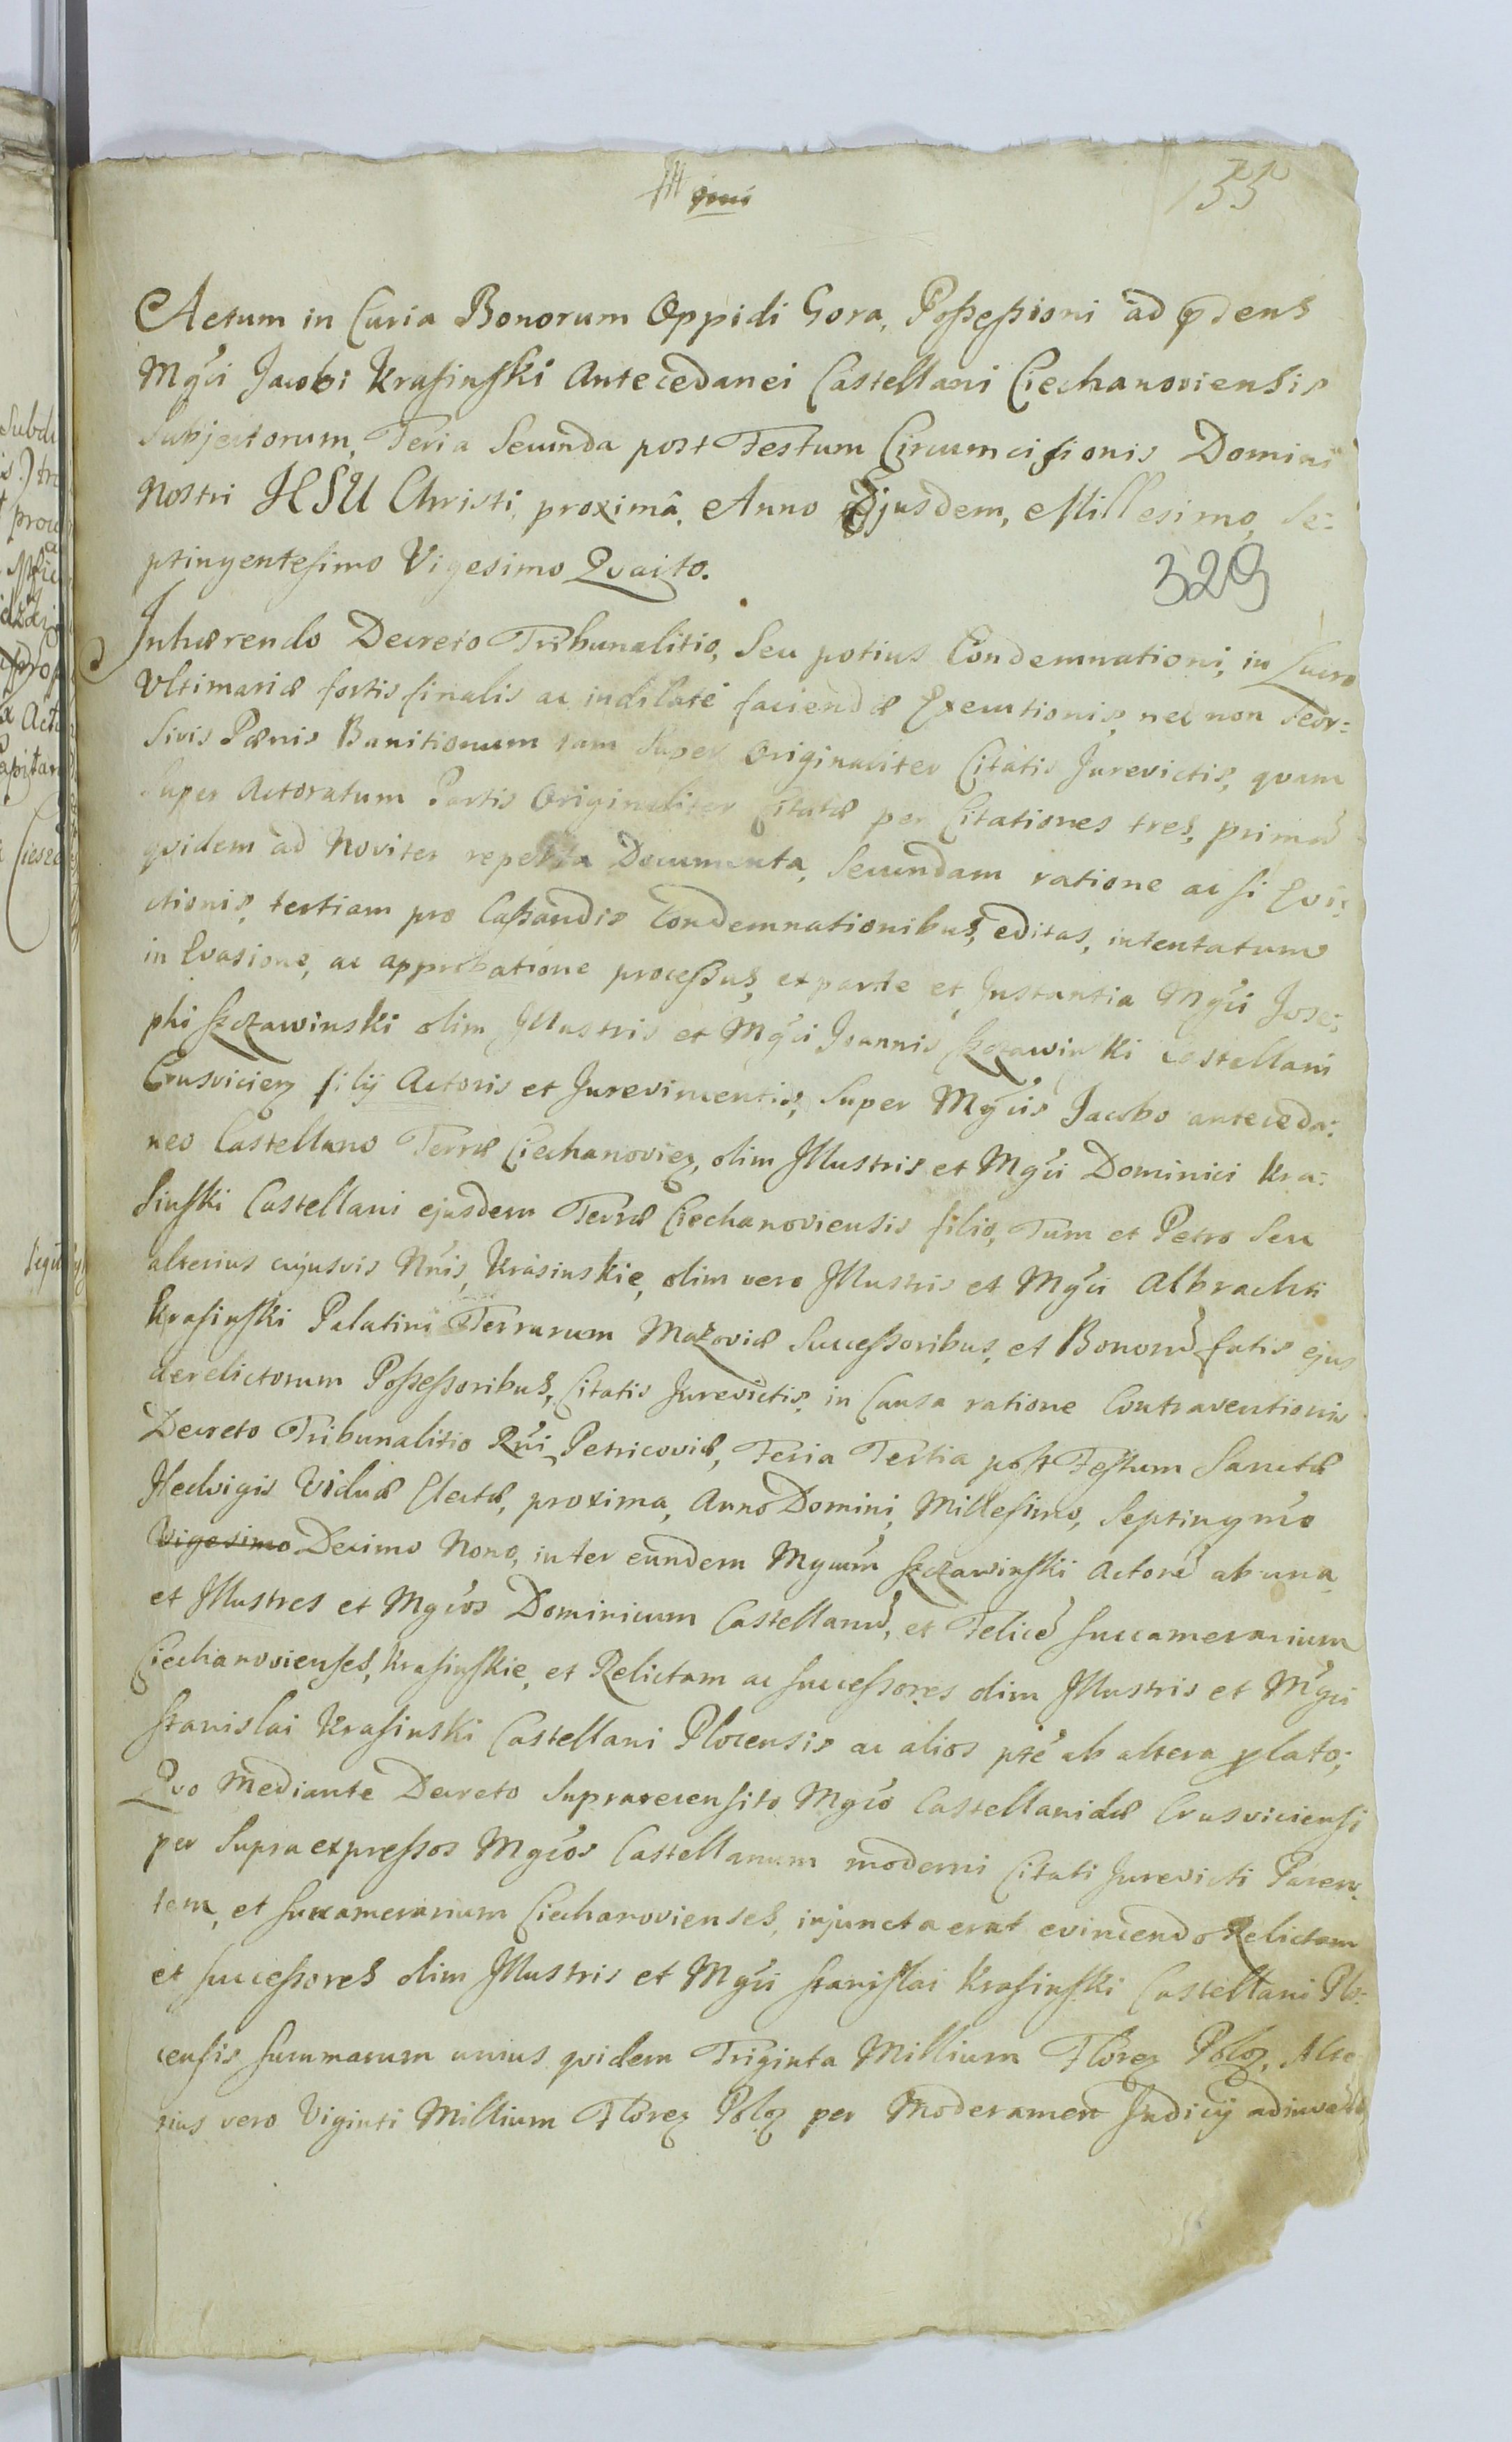 155
Actum in Curia Bonorum Oppidi Gora, Possessioni ad pdens
Mgci Jacobi Krasinski Antecedanei Castellani Ciechanoviensis
Subjectorum, Feria Secunda post Festum Circumcisionis Domini
Nostri JESU Christi, proximâ, Anno Ejusdem, Millesimo, Se:
ptingentesimo Vigesimo Qvarto.
329
Inhærendo Decreto Tribunalitio, Seu potius Condemnationi, in Lucro
Vltimariæ fortis finalis ac indilatè faciendæ Executionis, nec non Seor:
sivis Pænis Banitionum tam Super Originaliter Citatis Jurevictis, qvam
Super Actoratum Partis Originaliter Citatæ per Citationes tres, primã
qvidem ad Noviter reperta Documenta, Secundam ratione ac si Evi:
ctionis, tertiam pro Cassandis Condemnationibus, editas, intentatum
in Evasione, ac approbatione processus, ex parte et Instantia Mgci Jose:
phi Szczawinski olim Illustris et Mgci Joannis Szczawinski Castellani
Crusvicien filij Actoris et Jurevincentis, Super Mgcis Jacobo anteceda:
neo Castellano Terræ Ciechanovien, olim Illustris et Mgci Dominici Kra:
sinski Castellani ejusdem Terræ Ciechanoviensis filio, Tum et Petro Seu
alterius cujusvis Nnis, Krasinskie, olim vero Illustris et Mgci Albrachti
Krasinski Palatini Terrarum Mazoviæ Successoribus, et Bonorũ fatis ejus
derelictorum Possessoribus, Citatis Jurevictis, in Causa ratione Contraventionis
Decreto Tribunalitio Rni Petricoviæ, Feria Tertia post Festum Sanctæ
Hedvigis Viduæ Electæ, proxima, Anno Domini, Millesimo, Septingmo
Vigesimo Decimo Nono, inter eundem Mgcum Szczawinski Actorẽ ab una
et Illustres et Mgcos Dominicum Castellanũ, et Felicẽ Succamerarium
Ciechanovienses, Krasinskie, et Relictam ac Successores olim Illustris et Mgci
Stanislai Krasinski Castellani Plocensis ac alios pte ab altera plato;
Qvo Mediante Decreto Suprarecensito Mgco Castellanidæ Crusviciensi
per Supraexpressos Mgcos Castellanum moderni Citati Jurevicti Paren:
tem, et Succamerarium Ciechanovienses, injuncta erat evincendo Relictam
et Successores olim Illustris et Mgci Stanislai Krasinski Castellani Plo:
censis Summarum unius qvidem Triginta Millium Floren Polo, Alte
rius vero Viginti Millium Floren Polo per Moderamen Judicij